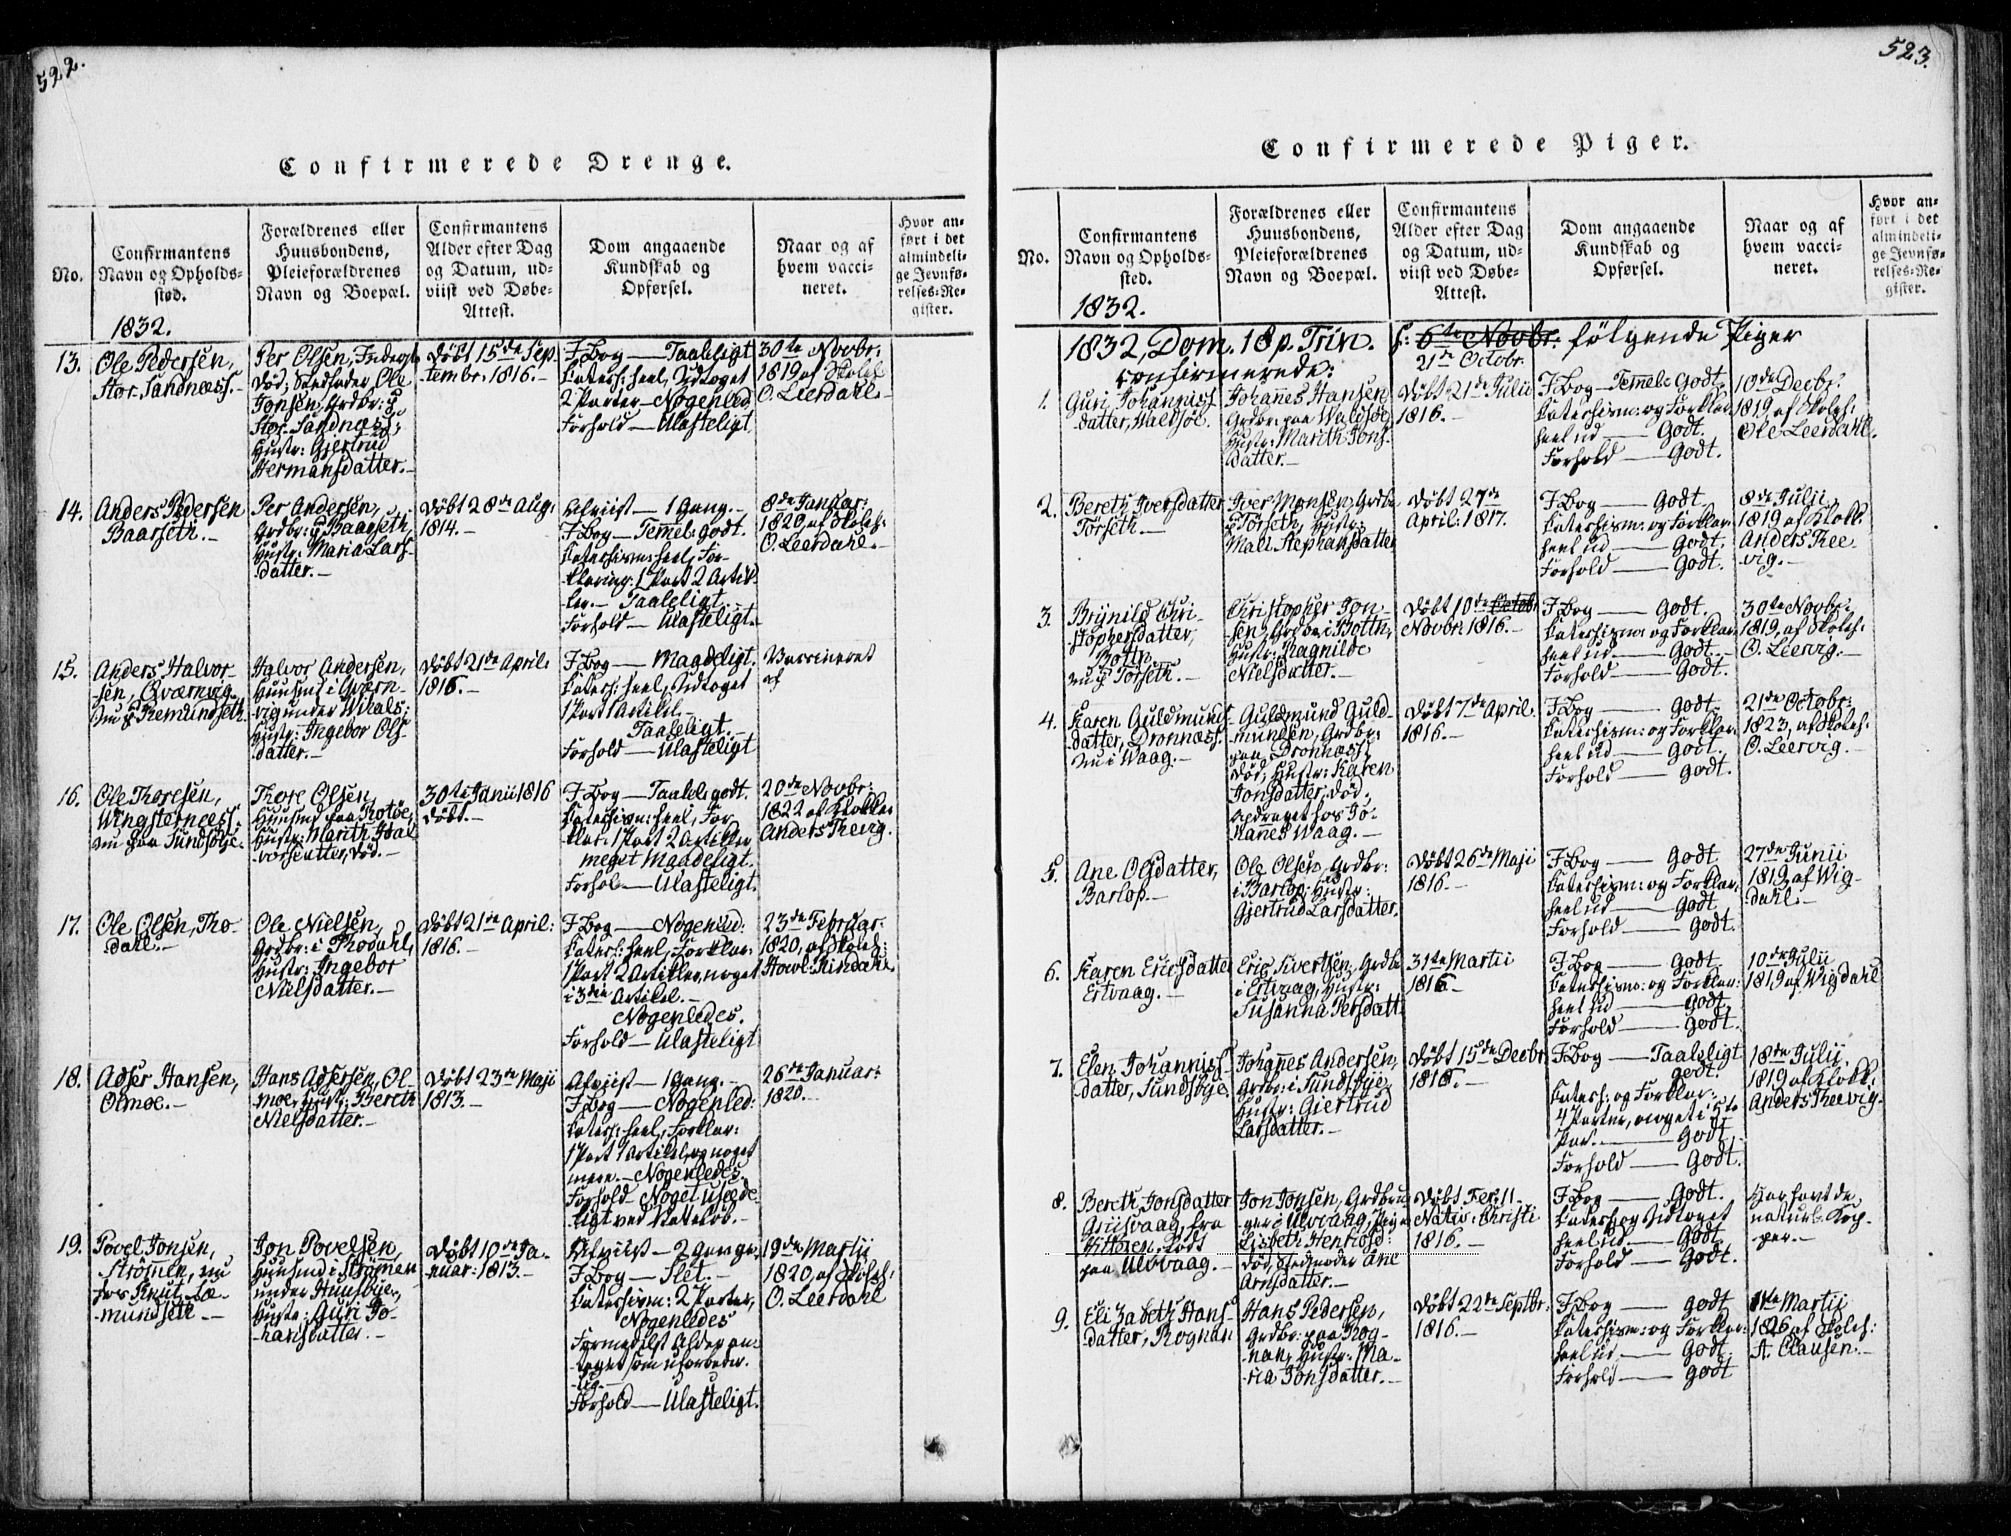 522.
Confirmerede Drenge.
No.
Confirmantens
Navn og Opholds-
sted.
Forældrenes eller
Huusbondens,
Pleieforældrenes
Navn og Boepæl.
Confirmantens
Alder efter Dag
og Datum, ud-
viist ved Døbe-
Attest.
Dom angaaende
Kundskab og
Opførsel.
Naar og af
hvem vacci-
neret.
Hvor an-
ført i det
almindeli-
ge Jevnfø-
relses-Re-
gister.
1832.
13.
Ole Pedersen,
Stor-Sandness.
Per Olsen,
død; Stedfader Ole
Jonsen, Grdbr: 
Stor-Sandness;
Hustr: Gjertrud
Hermansdatter.-
Døbt 15de Sep-
tembr: 1816.-
I Bog — Taaleligt
Catech: heel, Udtoget
2 Parter - Nogenled
Forhold — Ulasteligt.
30te Novbr:
1819 af Skoleh:
O. Leerdahl.-
14.
Anders Pedersen
Baarseth.-
Per Andersen,
Grdbr: Baarseth,
Hustr: Maria Lars-
datter.-
Døbt 28de Aug:
1814.-
Afviist — 1 Gang.-
I Bog — Temmel: godt.
Catechism: heel, For-
klaring: 1 Part 2 Artik-
ler.- Taaleligt.
Forhold — Ulasteligt.
8de Januar:
1820, af Skoleh:
O. Leerdahl.-
15.
Anders Halvor-
sen, Qværnvig
nu Remundseth
Halvor Andersen,
Huusmd i Qværn-
vig under
Hustr: Ingebor Ols-
datter.-
Døbt 21de April:
1816.-
I Bog — Maadeligt.
Catech: heel, Udtoget
1 Part 1 Artikel.-
Taaleligt.
Forhold — Ulasteligt
Vaccineret
af
16.
Ole Thoresen,
Wingsterness:
nu paa Sundsøje.
Thore Olsen,
Huusmd paa
Hustr: Marith Hal-
vorsdatter, død.-
30te Junii 1816
Døbt.-
I Bog — Taalel: godt.
Catechism: heel, For-
klar: 1 Part 2 Artikler
meget Maadeligt.
Forhol- — Ulasteligt.
20de Novbr:
1822 af Klokker
Anders Reevig.
17.
Ole Olsen, Tho-
dahl.-
Ole Nielsen,
Grdbr: i Thodahl,
Hustr: Ingebor
Nielsdatter.-
Døbt 21de April:
1816.-
I Bog — Nogenled:
Catech: heel, Forklar:
1 Part 2 Artikler, noget
i 3die Artikel.-
Nogenledes.
Forhold — Ulasteligt
23de Februar:
1820, af Skoleh:
Hawl: Rindahl
18.
Adser Hansen,
Olmoe.-
Hans Adsersen, Ol-
moe, Hustr: Bereth
Nielsdatter.-
Døbt 23de Maji
1813.-
Afviist — 1 Gang.-
I Bog — Nogenled:
Catech: heel, Forklar:
1 Part 1 Artikel, og noget
mere.- Nogenledes.
Forhold - Noget usæde-
ligt ved
26de Januar:
1820.-
19.
Povel Jonsen,
Strömen, nu
hos Knut
mundseth.-
Jon Povelsen,
Huusmd i Strömen
under Huusbye,
Hustr: Guri Jo-
hansdatter.-
Døbt 10de Ja-
nuar: 1813.-
Afviist - 2 Gange.
I Bog — Slet.-
Catechism: 2 Parter,
Nogenledes
Formedelst Alder an-
taget som uforbeder-
lig.-
Forhold — Ulasteligt.
19de Martii
1820, af Skoleh:
O. Leerdahl
523.
Confirmerede Piger.
No.
Confirmantens
Navn og Opholds-
sted.
Forældrenes eller
Huusbondens,
Pleieforældrenes
Navn og Boepæl.
Confirmantens
Alder efter Dag
og Datum, ud-
viist ved Døbe-
Attest.
Dom angaaende
Kundskab og
Opførsel.
Naar og af
hvem vacci-
neret.
Hvor an-
ført i det
almindeli-
ge Jevnfø-
relses-Re-
gister.
1832.
1832, Dom. 18 p. Trin. S: 6te Novbr. følgende Piger
21de Octobr.
confirmerede:
1.
Guri Johannis-
datter, Waldsøe.
Johannes Hansen
Grdbr: paa Waldsøe,
Hustr: Marith Jons-
datter.-
Døbt 21de Julii
1816.-
I Bog - Temmel: Godt.
Catechism: og Forklar:
heel ud — Godt.
Forhold — Godt.
10de Decbr:
1819 af Skoleh:
Ole Leerdahl.
2.
Bereth Iversdatter
Torseth.-
Iver Monsen, Grdbr:
Torseth, Hustr:
Mali Stephansdatter
Døbt 27de
April: 1817.
I Bog — Godt.
Catechism: og Forklar:
heel ud — Godt.
Forhold — Godt.
8de Julii
1819 af Klokk:
Anders Ree-
vig.-
3.
Brynild Chri-
stophersdatter,
Botten
nu Torseth.-
Christopher Jon-
sen, Grdbr: i Bottn,
Hustr: Ragnilde
Nielsdatter.-
Døbt 10de Octobr
Novbr: 1816.-
I Bog — Godt.
Catechism: og Forklar:
heel ud — Godt.-
Forhold — Godt.
30te Novbr:
1819, af Skoleh:
O. Leervig.-
4.
Karen Guldmunds-
datter, Dronness.
nu i Waag.-
Guldmund Guld-
mundsen, Grdbr:
paa Dronness,
død, Hustr: Karen
Jonsdatter, død,
opdraget hos Jo-
hannes Waag.-
Døbt 7de April:
1816.-
I Bog — Godt.
Catechism: og Forklar:
heel ud — Godt.
Forhold — Godt.
21de Octobr:
1823, af Skoleh:
O. Leervig.-
5.
Ane Olsdatter,
Barlop.-
Ole Olsen, Grdbr:
i Barlop, Hustr:
Gjertrud Larsdatter.
Døbt 26de Maji
1816.-
I Bog — Godt
Catechism: og Forklar:
heel ud — Godt
Forhold — Godt.
27de Junii
1819, af Wig-
dahl.-
6.
Karen Ericsdatter
Ertvaag.-
Eric Sivertsen, Grdbr
i Ertvaag, Hustr:
Susanna Persdatt:
31te Martii
1816.-
I Bog — Godt.
Catechism: og Forklar:
heel ud — Godt.
Forhold — Godt.
10de Julii
1819 af Wigdahl
7.
Elen Johannis-
datter, Sundsøye.
Johannes Andersen,
Grdbr: i Sundsøye,
Hustr: Gjertrud
Larsdatter.-
Døbt 15de Decbr:
1816.-
I Bog — Taaleligt
godt.
Catech: og Forklar:
4 Parter, noget i 5te
Par. — Godt.
Forhold — Godt.
18de Julii
1819 af Klokk:
Anders Reevig.
8.
Bereth Jonsdatter
Griisvaag, fra
paa Ulvvaag.-
Jon Jonsen, Grdbru-
ger i Ulvvaag, Pige
Lisbeth Henricsd:
død, Stedmoder Ane
Arnsdatter.-
Døbt Fer: 11
Nativ: Christi
1816.-
I Bog — Godt.
Catech: og Udtoget
heel ud — Godt
Forhold — Godt.
Har havt de
naturl: Kop-
per.-
9.
Elizabeth Hans-
datter, Rognan
Hans Pedersen,
Grdbr: paa Rog-
nan, Hustr: Ma-
ria Jonsdatter.-
Døbt 22de Septbr:
1816.-
I Bog — godt
Catechism: og Forklar:
heel ud — Godt.
Forhold — Godt
Martii
1826 af Skoleh:
A. Clausen.-